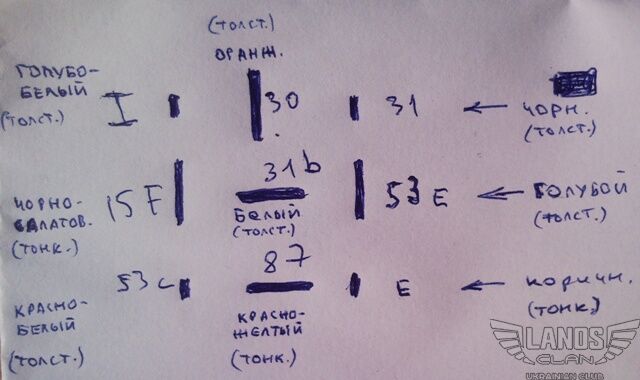 (ТОЛСТ.)
ОРАНЖ.
ГОЛУБО-
БЕЛЫЙ
(ТОЛСТ.)
I
30
31
ЧОРН.
(ТОЛСТ.)
ЧОРНО-
САЛАТОВ.
(ТОНК.)
15F
31b
БЕЛЫЙ
(ТОЛСТ.)
53 E
ГОЛУБОЙ
(ТОЛСТ.)
КРАСНО-
БЕЛЫЙ
(ТОЛСТ.)
53 c
87
КРАСНО-
ЖЕЛТЫЙ
(ТОНК.)
E
КОРИЧН.
(ТОНК.)
LANOS
CLAN
UKRAINIAN CLUB